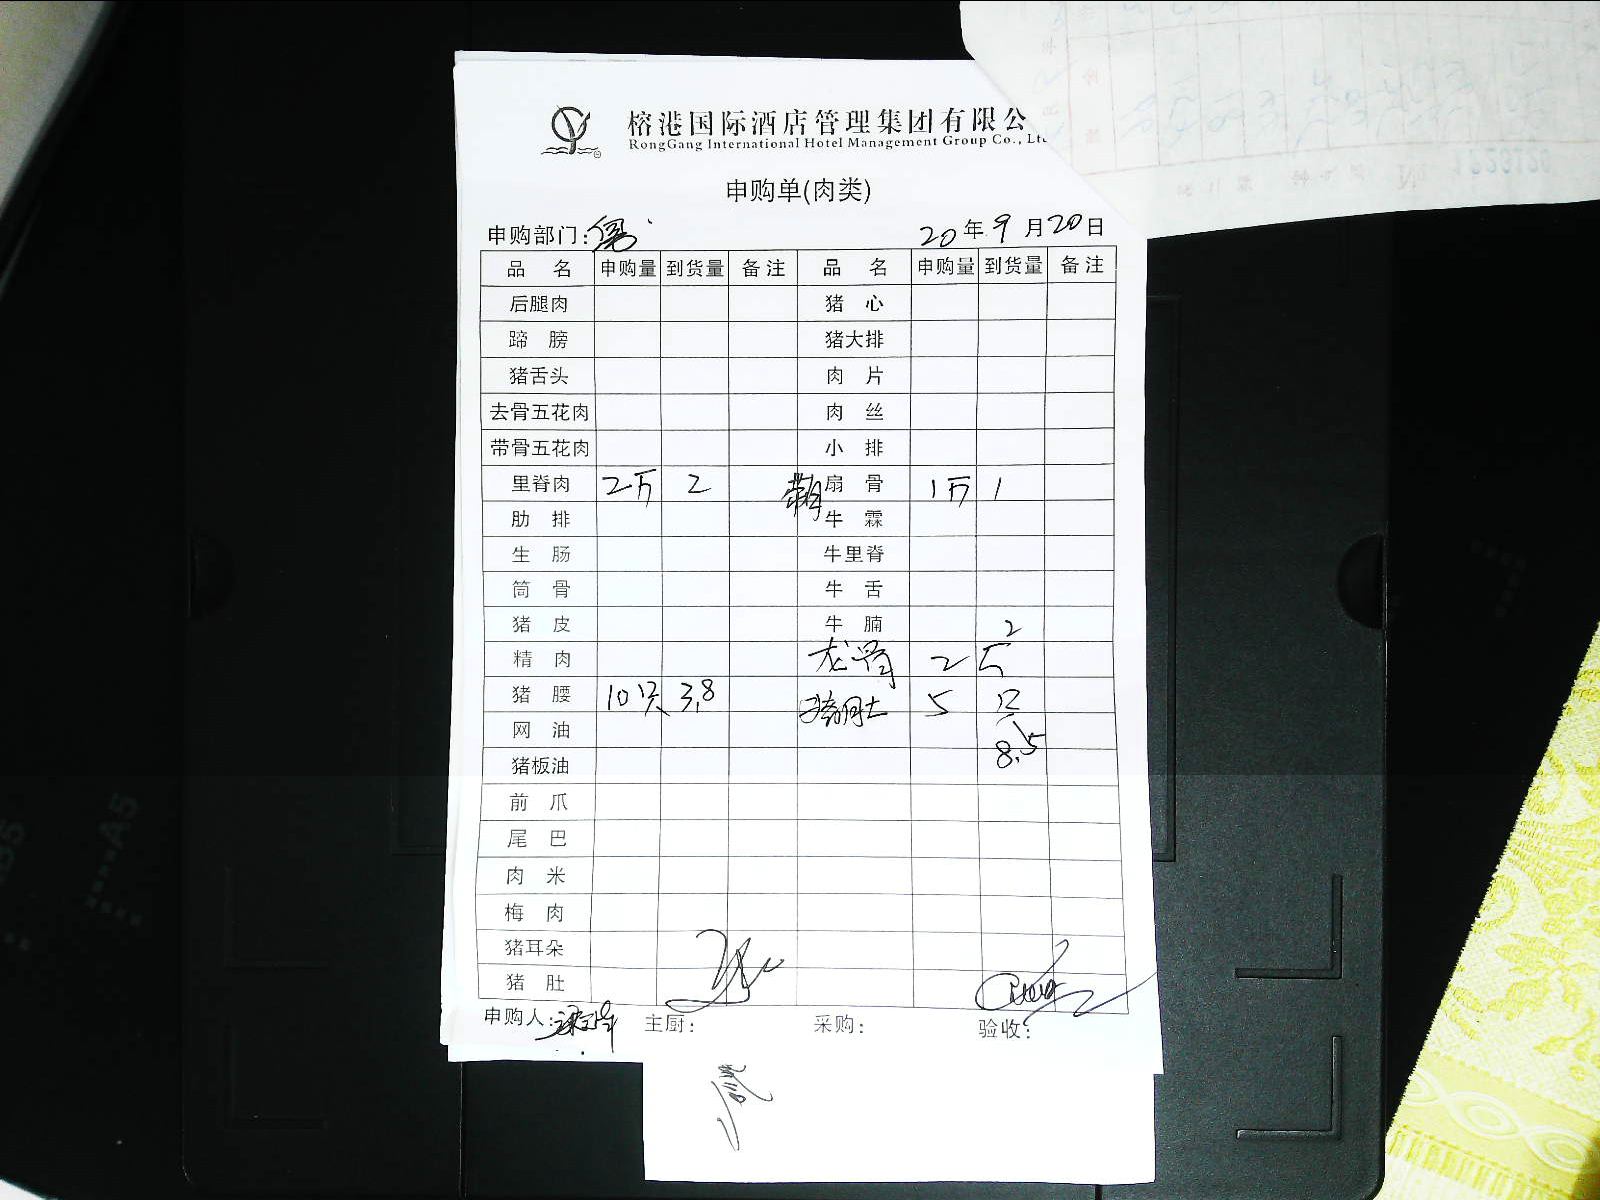 榕港国际酒店管理集团有限公
RongGang International Hotel Management Group Co., Lt
申购单(肉类)
申购部门: 20年9月20日
品 名 申购量 到货量 备注 品 名 申购量 到货量 备注
后腿肉 猪 心
蹄 膀 猪大排
猪舌头 肉 片
去骨五花肉 肉 丝
带骨五花肉 小 排
里脊肉 2斤 2 扇 骨 1斤 1
肋 排 牛 霖
生 肠 牛里脊
筒 骨 牛 舌
猪 皮 牛 腩 2
精 肉 龙骨 2斤
猪 腰 10只 3.8 猪肚 5 只
网 油 8.5
猪板油
前 爪
尾 巴
肉 米
梅 肉
猪耳朵
猪 肚
申购人: 主厨: 采购: 验收: